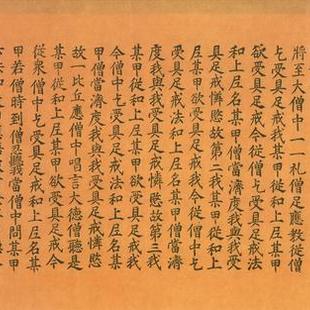 將至大僧中一一礼僧足應教從僧
乞受具足戒我某甲從和上尼某甲
欲受具足戒今從僧乞受具足戒法
和上尼名某甲僧當濟度我與我受
具足戒憐愍故第二我某甲從和上
尼某甲欲受具足戒我今從僧中乞
受具足戒法和上尼名某甲僧當濟
度我與我受具足戒憐愍故第三我
某甲從和上尼某甲欲受具足戒我
今僧中乞受具足戒法和上尼名某
甲僧當濟度我與我受具足戒憐愍
故一比丘應僧中唱言大德僧聽是
某甲從和上尼某甲欲受具足戒今
從衆僧中乞受具足戒和上尼名某
甲若僧時到僧忍聽當僧中問某甲